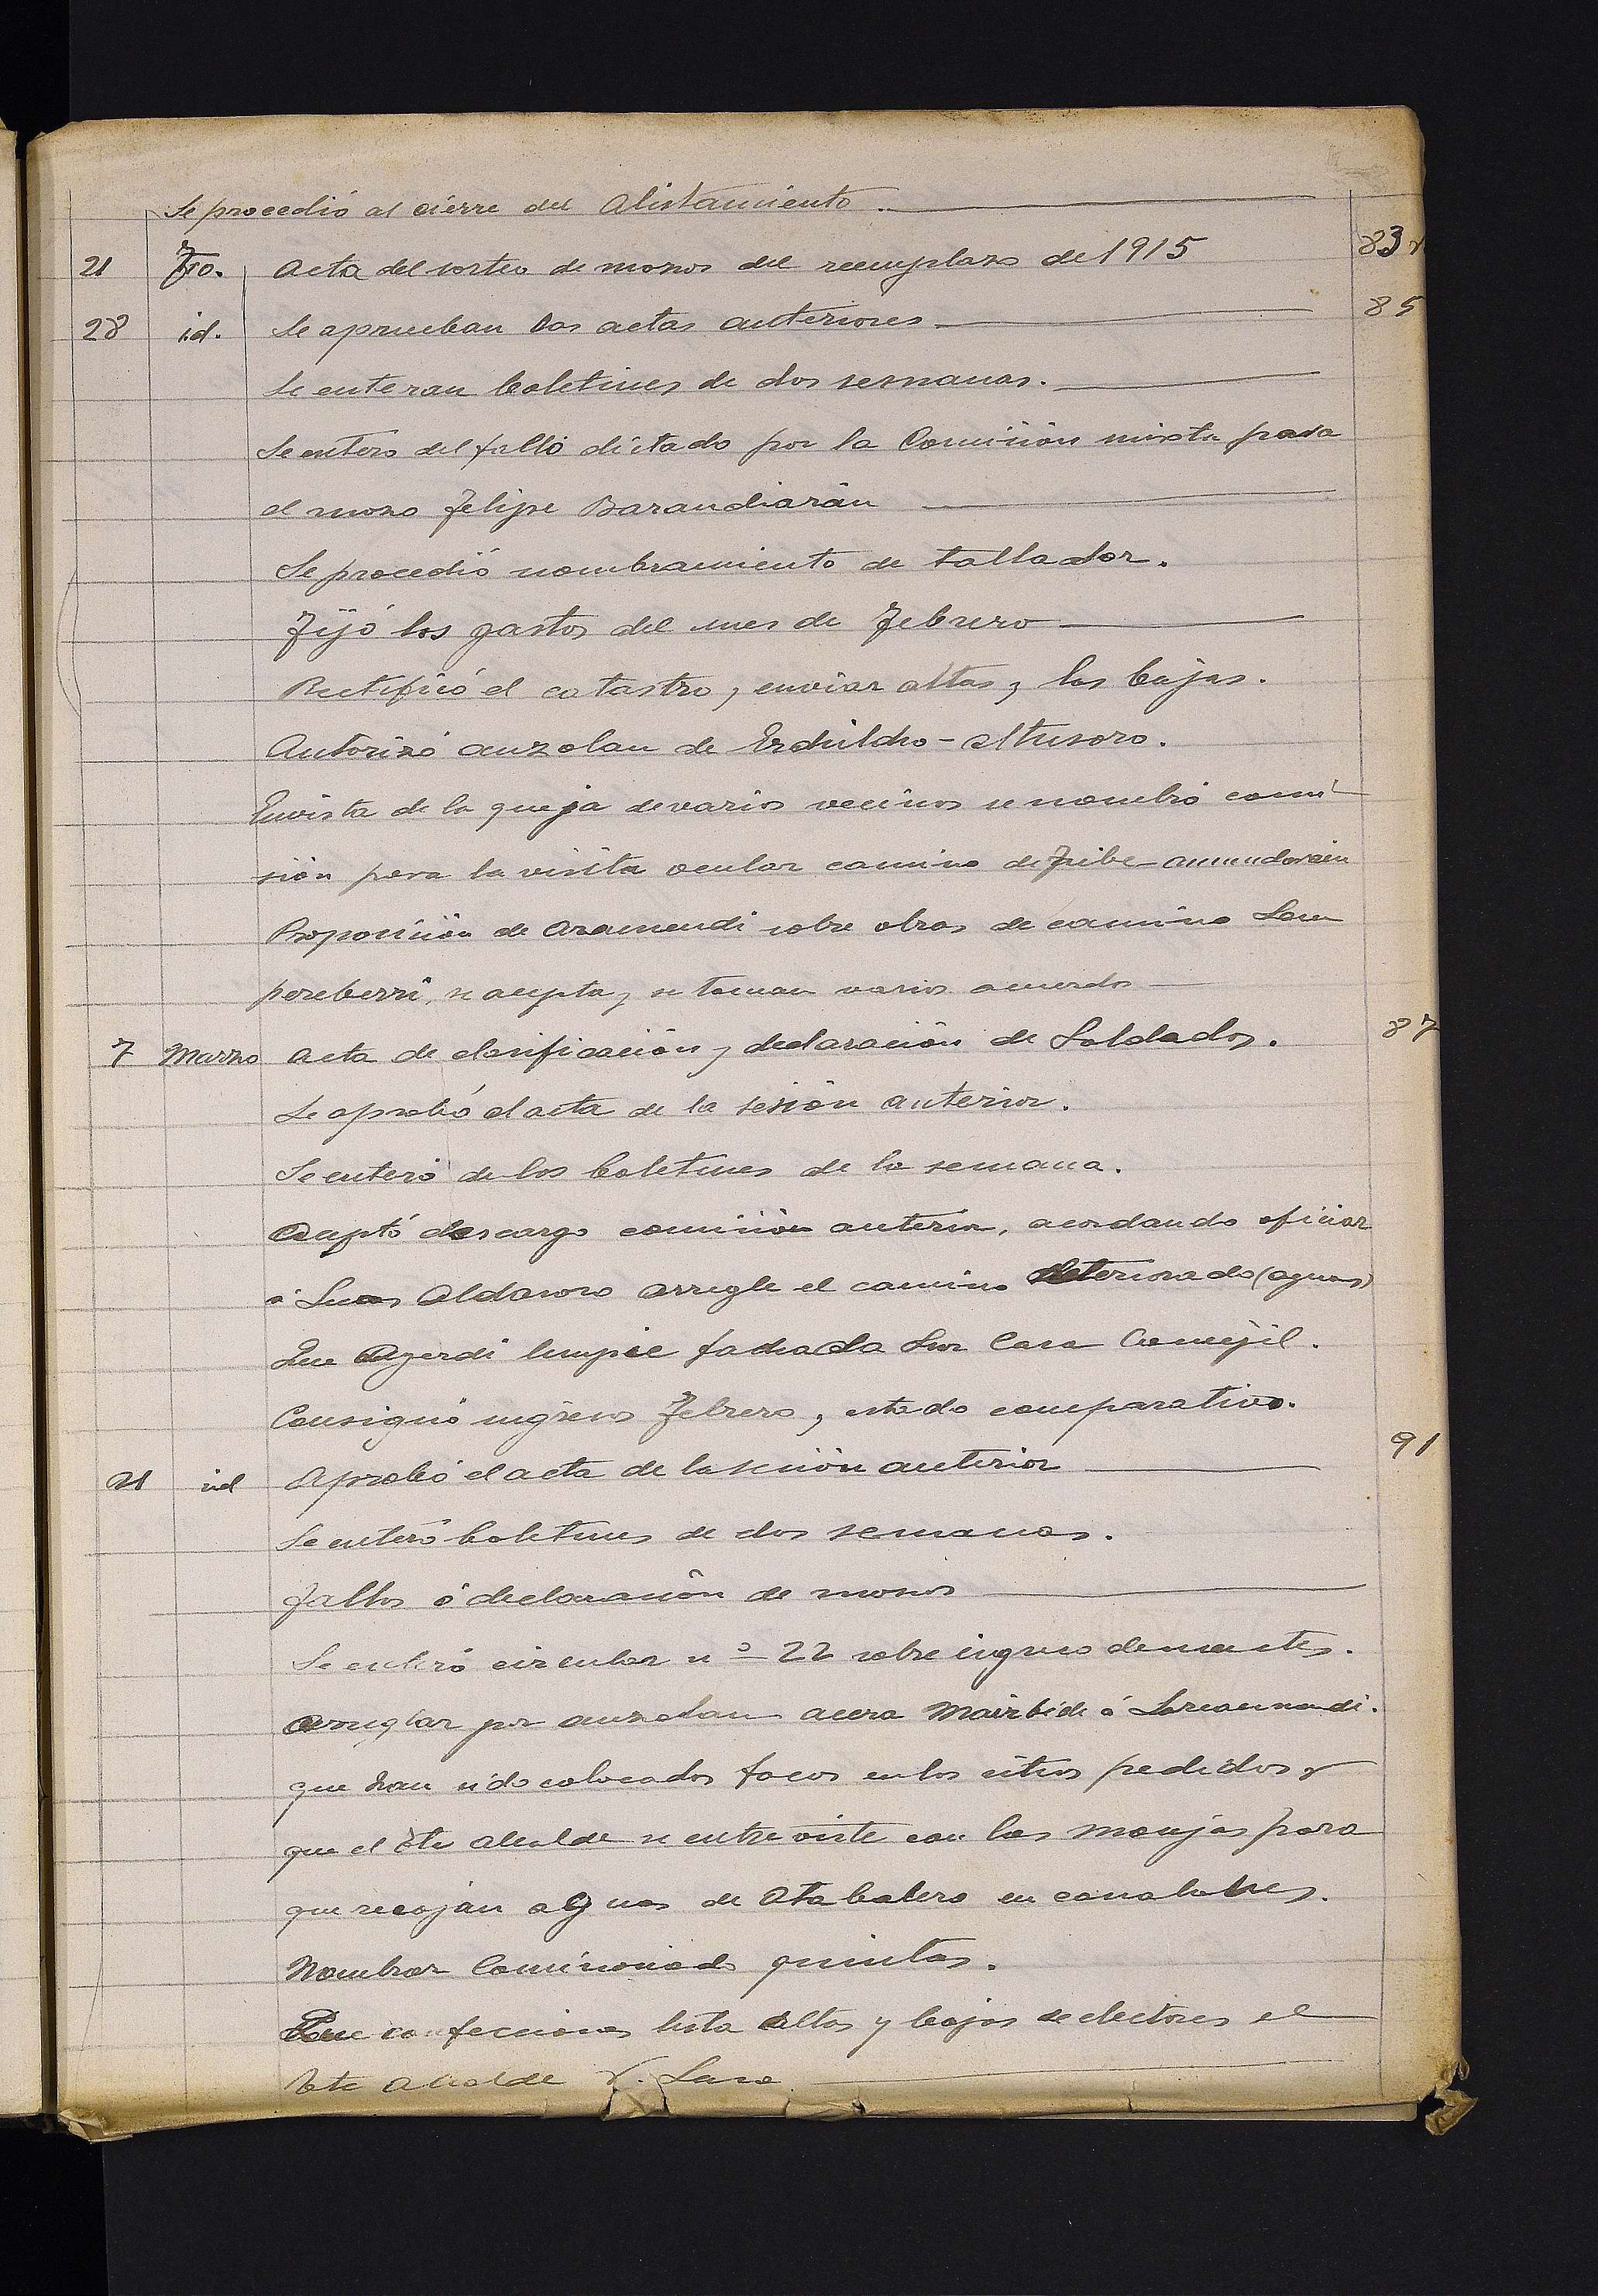 Se procedió al cierre del Alistamiento.
21 Fro. Acta del sorteo de mozos del reemplazo de 1915 83 v
28 id. Se aprueban las actas anteriores 85
Se enteran boletines de dos semanas.
Se enteró del fallo dictado por la Comisión mixta para
el mozo Felipe Barandiarán
Se procedió nombramiento de tallador.
Fijó los gastos del mes de Febrero
Rectificó el catastro, enviar altas y las bajas.
Autorizó auzolan de
En vista de la queja de varios vecinos se nombró comi-
sión para la visita ocular camino de
Proposición de Aramendi sobre obras de camino
se acepta y se toman varios acuerdos
7 Marzo Acta de clasificación y declaración de Soldados. 87
Se aprobó el acta de la sesión anterior.
Se enteró de los boletines de la semana.
Aceptó descargo comisión anterior, acordando oficiar
á Lucas Aldasoro arregle el camino deteriorado (aguas)
Que limpie fachada Sur Casa Concejil.
Consignó ingresos Febrero, estado comparativo.
21 id Aprobó el acta de la sesión anterior 91
Se enteró boletines de dos semanas.
Fallos ó declaración de mozos
Se enteró circular nº 22 sobre ingreso dementes.
Arreglar por auzolan acera Mairbide á
que han sido colocados focos en los sitios pedidos y
que el Tte alcalde se entreviste con las monjas para
que recojan aguas de Atabalero en canalones.
Nombrar Comisionado quintas.
Que confecciones lista altas y bajas de electores el
Tte Alcalde